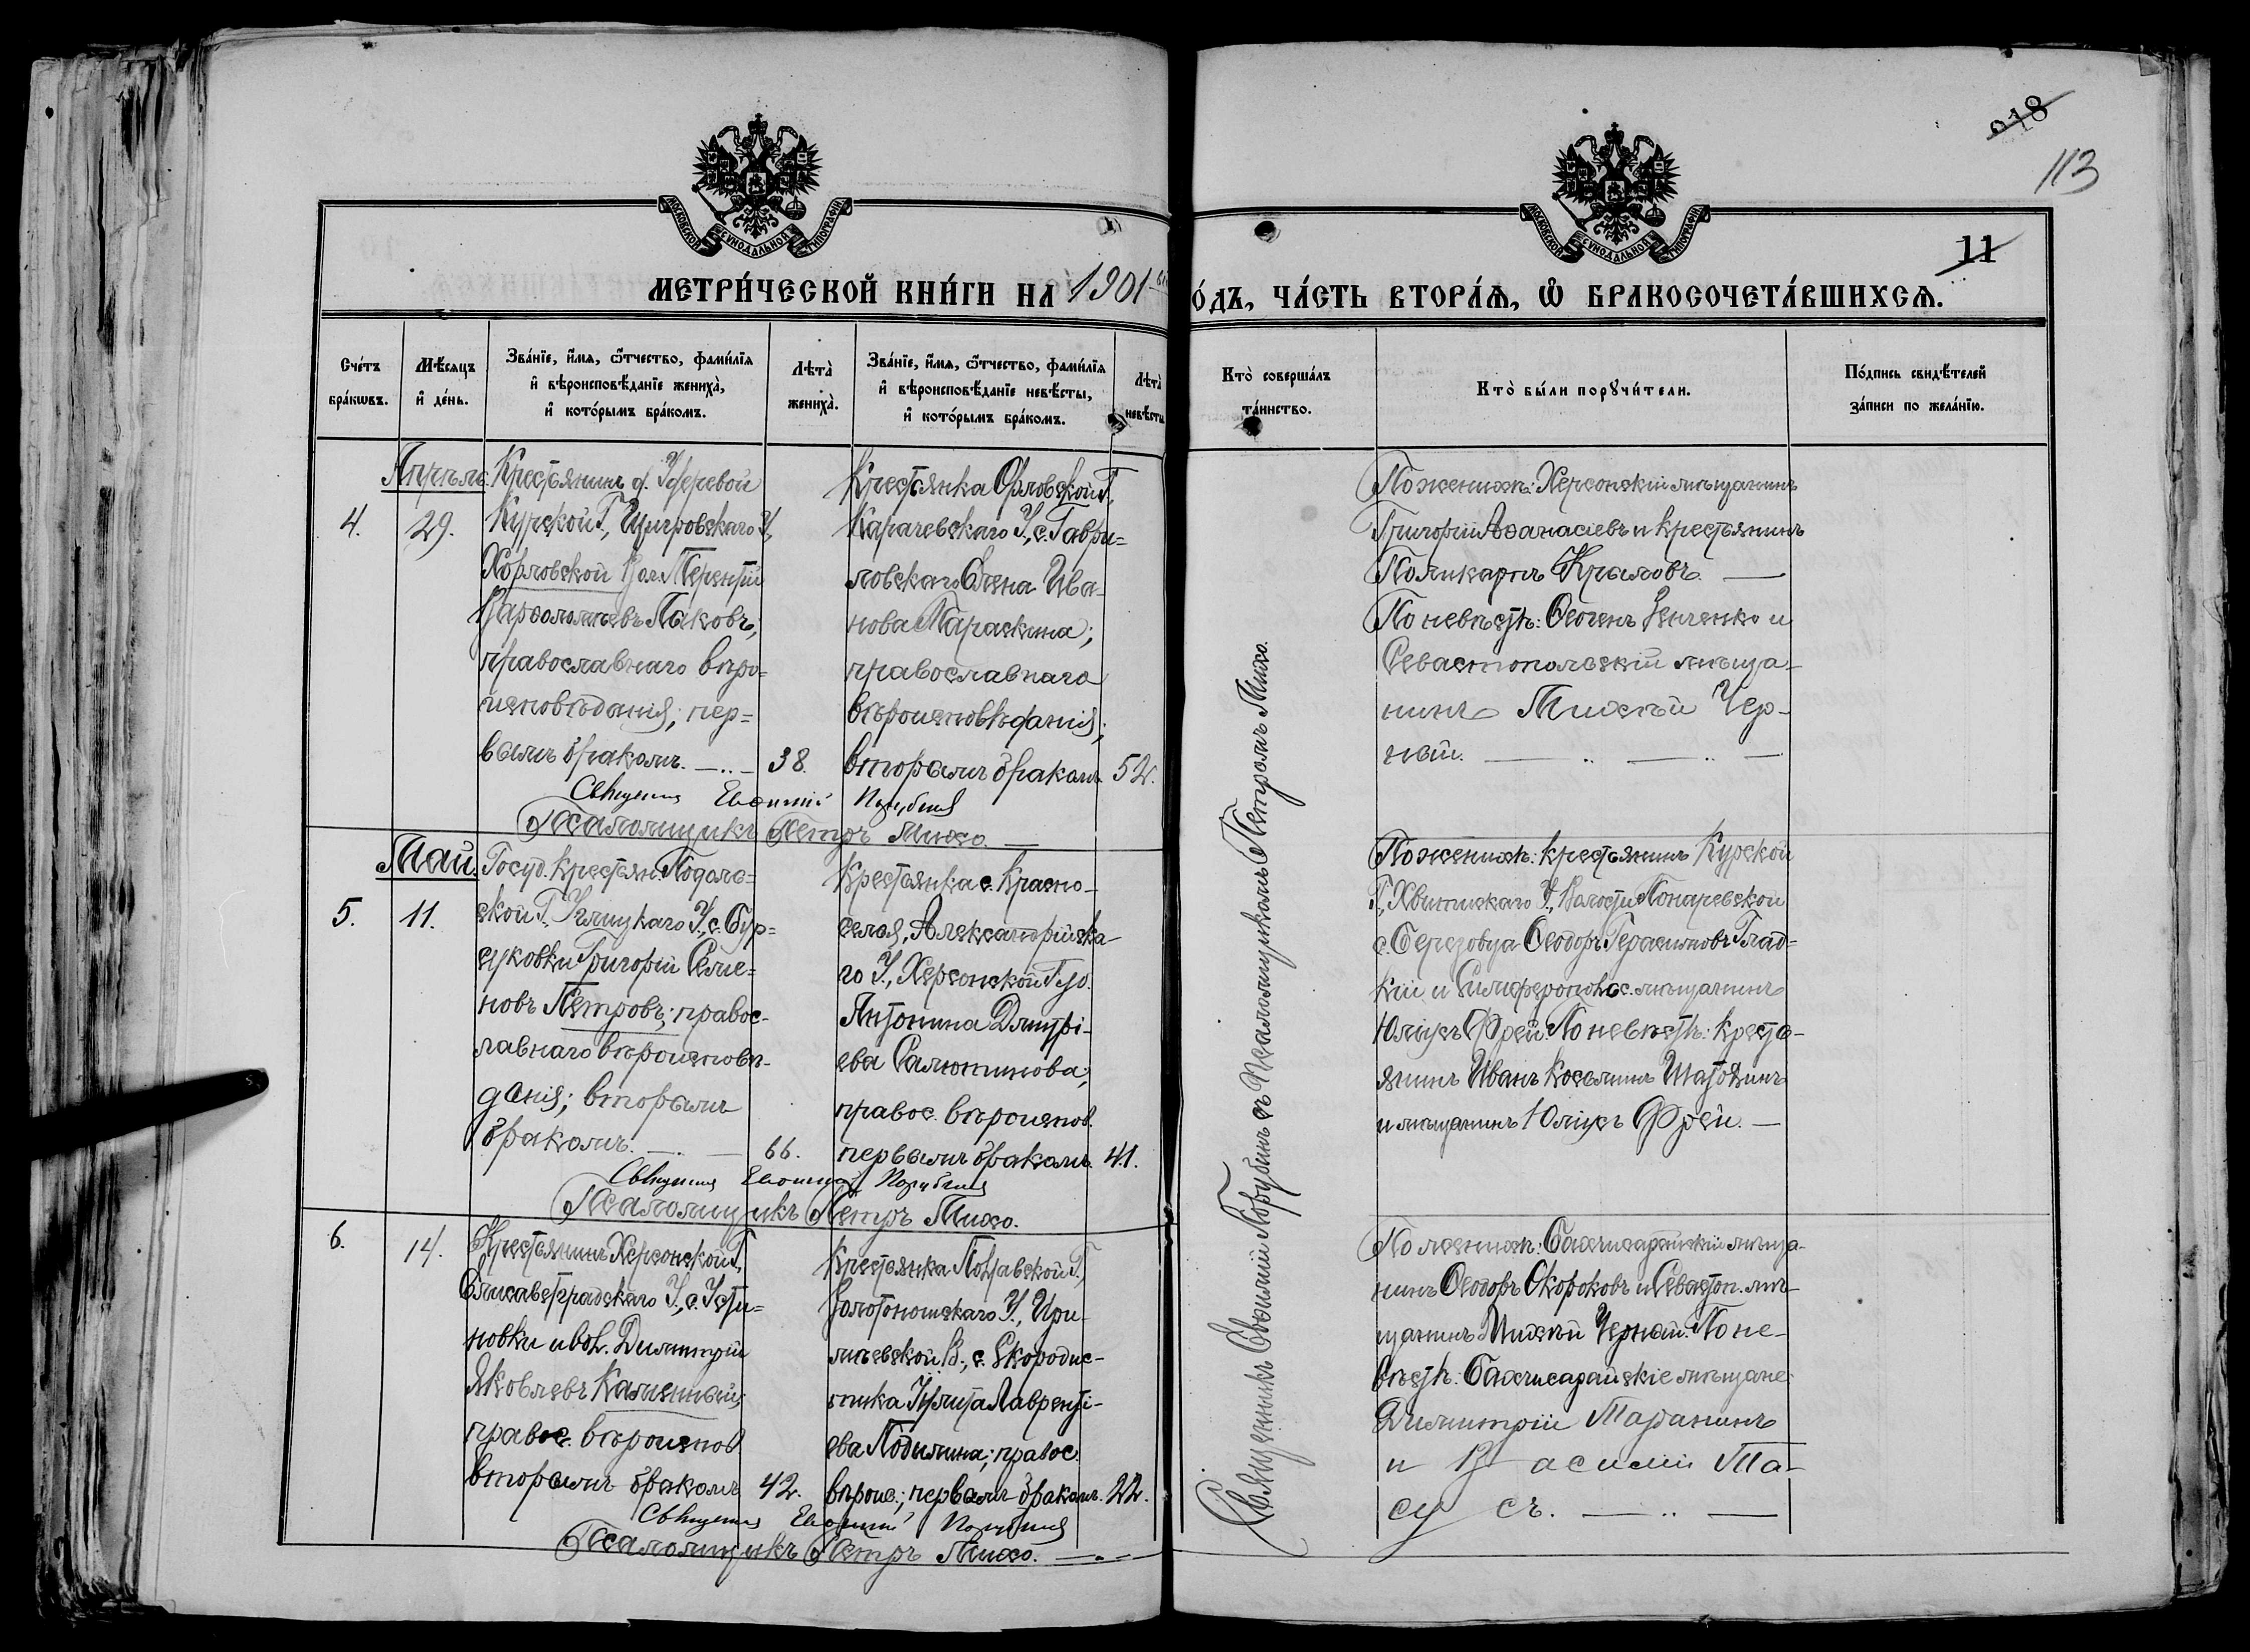 018
113
11
МОСКОВСКОЙ СѴНОДАЛЬНОЙ ТИПОГРАФІИ
МОСКОВСКОЙ СѴНОДАЛЬНОЙ ТИПОГРАФІИ
МЕТРИ́ЧЕСКОЙ КНИ́ГИ НА 1901
О́ДЪ, ЧА́СТЬ ВТОРА́Ѧ, Ѽ БРАКОСОЧЕТА́ВШИХСѦ.
Сче́тъ бра́кωвъ.
Мѣ́сяцъ и҆ де́нь.
Зва́нїе, и҆́мя, ѻ҆́тчество, фами́лїя
и҆ вѣроисповѣ́данїе жениха̀,
и҆ кото́рымъ бра́комъ.
Лѣта̀ жениха̀.
Зва́нїе, и҆́мя, ѻ҆́тчество, фами́лїя
и҆ вѣроисповѣ́данїе невѣ́сты,
и҆ кото́рымъ бра́комъ.
Лѣта̀ невѣ́сты
Кто̀ соверша́лъ та́инство.
Кто̀ бы́ли порꙋчи́тели.
По́дпись свидѣ́телей
за́писи по жела́нїю.
Апрѣль.
4.
29.
Крестьянинъ д.
Курской Г., Щигровскаго У.,
Хохловской Вол. Терентій
Варѳоломѣевъ Паковъ;
православнаго вѣро=
исповѣданія; пер=
вымъ бракомъ.
38.
Крестьянка Орловской Г.,
Карачевскаго У., с. Гаври=
ловскаго Елена Ива-
нова Параскина;
православнаго
вѣроисповѣданія;
вторымъ бракомъ.
52.
По женихѣ: Херсонскій мѣщанинъ
Григорій Аѳанасіевъ и крестьянинъ
Поликарпъ Крамовъ.
По невѣстѣ: Евгенъ Зенченко и
Севастопольскій мѣща-
нинъ Михѣй Чер-
ный.
Священникъ Евѳимій Порубинъ
Псаломщикъ Петръ Михо.
Май.
5.
11.
Госуд. крестьян. Подоль=
ской Г., Ушицкаго У., с. Бур=
суковки Григорій Семе=
новъ Петровъ; правос-
лавнаго вѣроисповѣ-
данія; вторымъ
бракомъ.
66.
Крестьянка с. Красно-
селья, Александрійска-
го У., Херсонской Губ.
Антонина Дмитрі-
ева Салютинова;
правос. вѣроиспов.
первымъ бракомъ.
41.
По женихѣ: крестьянинъ Курской
Г., У., Волости Понаревской
с. Березовца Ѳеодоръ Герасимовъ Глад=
кій и Симферопольс. мѣщанинъ
Юліусъ Фрей. По невѣстѣ: кресть-
янинъ Иванъ Косьминъ Шатохинъ
и мѣщанинъ Юліусъ Фрей.
Священникъ Евѳимій Порубинъ
Псаломщикъ Петръ Михо.
6.
14.
Крестьянинъ Херсонской Г.,
Елисаветградскаго У., с. Усти=
новки и вол. Димитрій
Яковлевъ Каменный;
правос. вѣроиспов
вторымъ бракомъ
42.
Крестьянка Полтавской Г.,
Золотоношскаго У., Ирк-
лѣевской В., с. Скородис-
тика Улита Лавренті-
ева Подимина; правос.
вѣроис.; первымъ бракомъ.
22.
По женихѣ: Бахчисарайскій мѣща-
нинъ Ѳеодоръ Скороковъ и Севастоп. мѣ-
щанинъ Михѣй Черный. По не-
вѣстѣ: Бахчисарайскіе мѣщане:
Димитрій Таранинъ
и Василій Та-
су съ.
Священникъ Евѳимій Порубинъ
Псаломщикъ Петръ Михо.
Священникъ Евѳимій Порубинъ съ Псаломщикомъ Петромъ Михо.